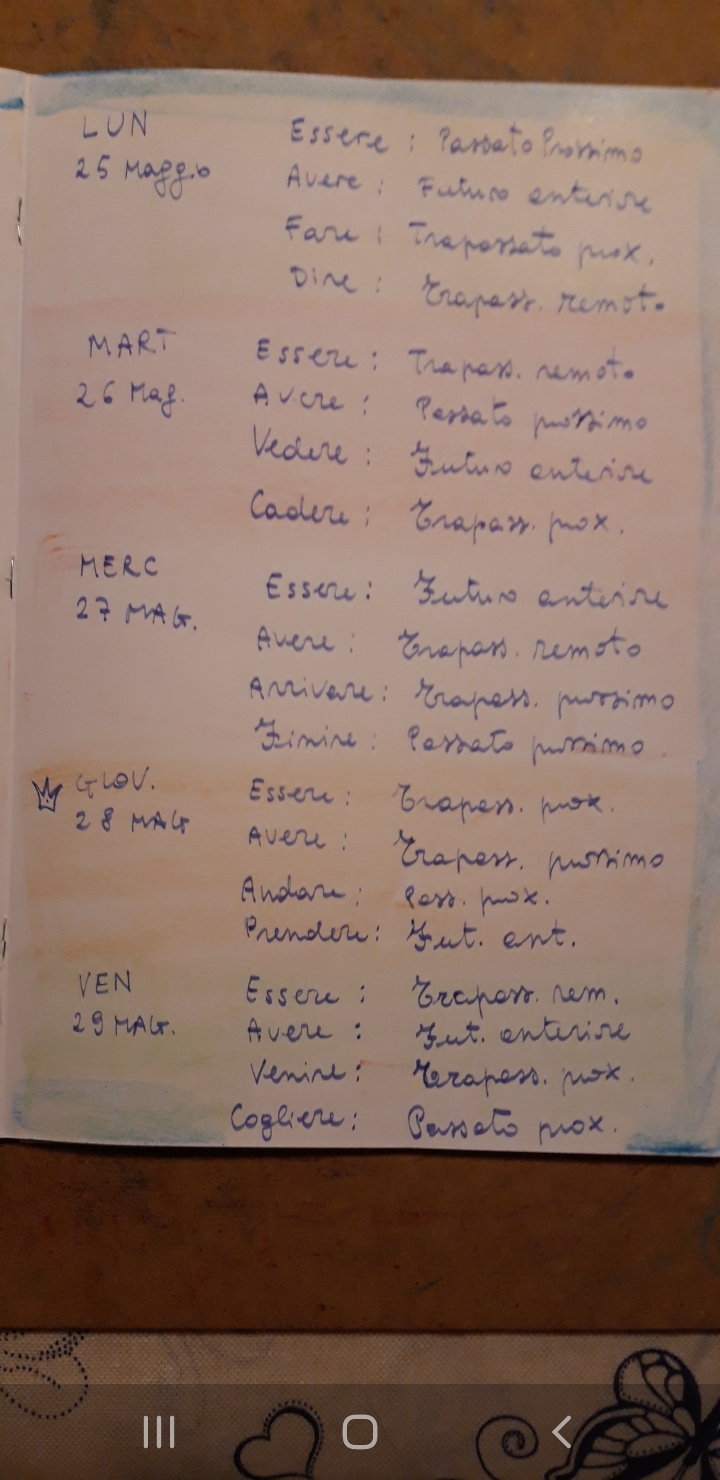 LUN Essere : Passato Prossimo
25 Maggio Avere : Futuro anteriore
Fare : Trapassato prox.
Dire : Trapass. remoto
MART Essere : Trapass. remoto
26 Mag. Avere : Passato prossimo
Vedere : Futuro anteriore
Cadere : Trapass. prox.
MERC Essere : Futuro anteriore
27 MAG. Avere : Trapass. remoto
Arrivare : Trapass. prossimo
Finire : Passato prossimo
GIOV. Essere : Trapass. prox.
28 MAG Avere : Trapass. prossimo
Andare : Pass. prox.
Prendere : Fut. ant.
VEN Essere : Trapass. rem.
29 MAG. Avere : Fut. anteriore
Venire : Trapass. prox.
Cogliere : Passato prox.